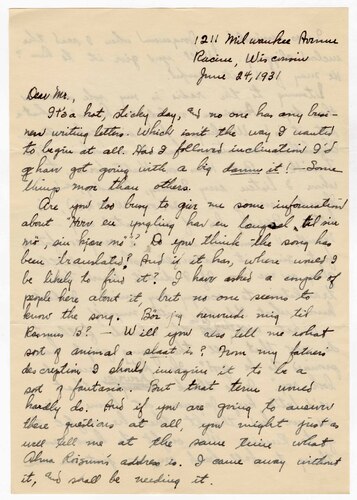 1211 Milwaukee Avenue
Racine, Wisconsin
June 24, 1931
Dear Mr.,
It's a hot, sticky day, & no one has any busi-
ness writing letters. Which isn't the way I wanted
to begin at all. Had I followed inclination I'd
have got going with a big damn it! - Some
things more than others.
Are you too busy to give me some information
about "Hver en yngling har en længsel, til
mø, sin hjem mø"? Do you think the song has
been translated? And if it has, where would I
be likely to find it? I have asked a couple of
people here about it, but no one seems to
know the song. Bör jeg mig til
Rasmus B? - Will you also tell me what
sort of animal a slaat is? From my father's
description I should imagine it to be a
sort of fantasia. But that term would
hardly do. And if you are going to answer
these questions at all, you might just as
well tell me at the same time what
Alma address is. I came away without
it, and shall be needing it.